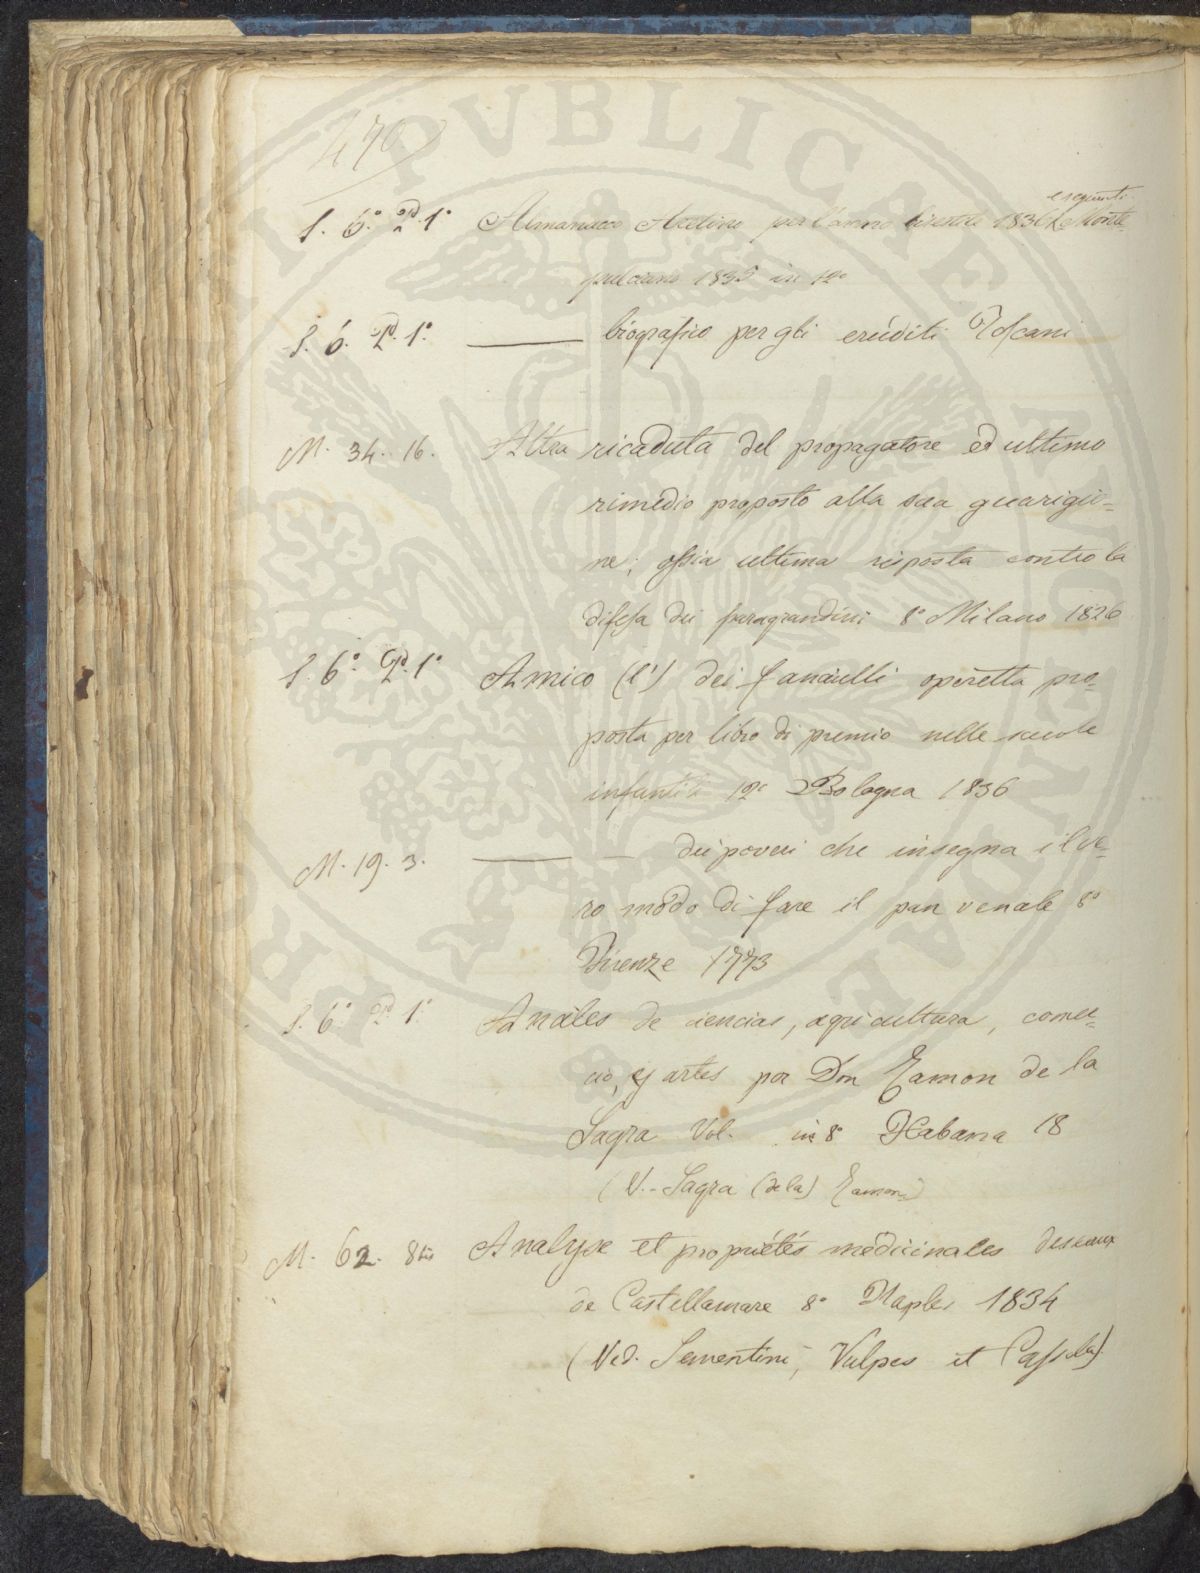 470
S. 6.° Pd. 1° Almanacco Aretino per l'anno bisestile 1836 e seguenti Monte-
pulciano 1835 in 12°
S. 6. Pd. 1.° ——— biografico per gli eruditi Toscani
M. 34. 16. Altra ricaduta del propagatore ed ultimo
rimedio proposto alla sua guarigio=
ne; ossia ultima risposta contro la
difesa dei paragrandini 8° Milano 1826
S. 6° Pd. 1° Amico (l') dei fanciulli operetta pro=
posta per libro di premio nelle scuole
infantili 12° Bologna 1836
M. 19. 3. ——— — dei poveri che insegna il ve=
ro modo di fare il pan venale 8°
Firenze 1773
S. 6.° Pd. 1° Anales de ciencias, agricultura, comer=
cio, y artes por Don Ramon de la
Sagra Vol. in 8° Habana 18
(V. Sagra (de la) Ramon)
M. 62. 8bis Analyse et propriétés médicinales des eaux
de Castellamare 8° Naples 1834
(Ved. Sementini, Vulpes et Cassola)
PVBLICAE